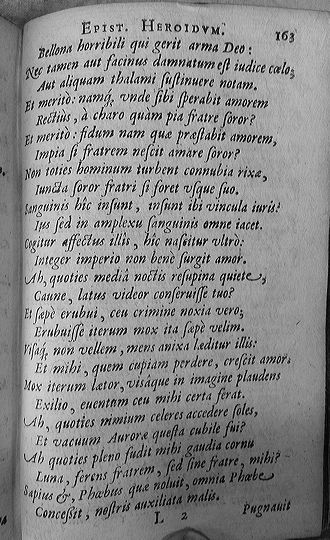 EPIST. HEROIDVM. 163
Bellona horribili qui gerit arma Deo:
Nec tamen aut facinus damnatum est iudice cœlo,
Aut aliquam thalami sustinuere notam.
Et meritò: namq, vnde sibi sperabit amorem
Rectius, à charo quàm pia fratre soror?
Et meritò: fidum nam quæ præstabit amorem,
Impia si fratrem nescit amare soror?
Non toties hominum turbent connubia rixæ,
Iuncta soror fratri si foret vsque suo.
Sanguinis hîc insunt, insunt ibi vincula iuris:
Ius sed in amplexu sanguinis omne iacet.
Cogitur affectus illìc, hîc nascitur vltrò:
Integer imperio non benè surgit amor.
Ah, quoties mediâ noctis resupina quiete,
Caune, latus videor conseruisse tuo?
Et sæpè erubui, ceu crimine noxia vero;
Erubuisse iterum mox ita sæpè velim.
Visaq, non vellem, mens anixa læditur illis:
Et mihi, quem cupiam perdere, crescit amor.
Mox iterum lætor, visáque in imagine plaudens
Exilio, euentum ceu mihi certa ferat.
Ah, quoties nimium celeres accedere soles,
Et vacuum Auroræ questa cubile fui?
Ah quoties pleno fudit mihi gaudia cornu
Luna, ferens fratrem, sed sine fratre, mihi?
Sæpius &, Phœbus quæ noluit, omnia Phœbe
Concessit, nostris auxiliata malis.
L 2 Pugnauit